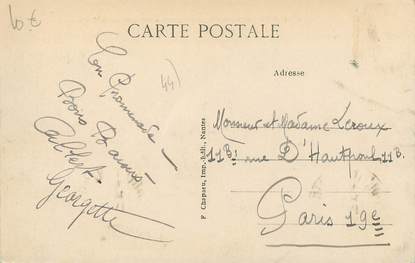 10 €
CARTE POSTALE
Adresse
44)
En Promenade —
Bons Baisers
Georgette
F Chapeau, Imp.-Édit., Nantes
Monsieur et Madame Leroux
11Bis rue D'Hautpoul 11B
Paris 19e